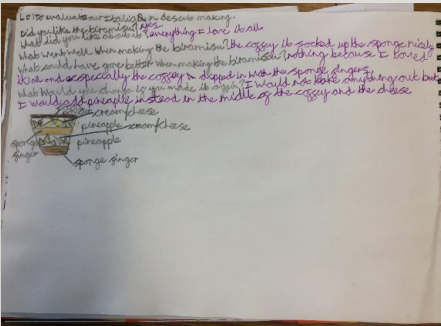 L.O. to evaluate our Italian desserts making.
Did you like the tiramisu? yes.
what did you like about it? everything I love it all
what went well when making the tiramisu? the coffey it socked up the sponge nicly
what could have gone better when making the tiramisu? nothing because I loved
it all and especially the coffey dipped in with the sponge fingers
what would you change if you made it again? I would not take anything out but
I would add pineaple instead in the middle of the coffey and the cheese
cream/cheese
pineapple
cream/cheese
sponge
finger
pineapple
sponge finger